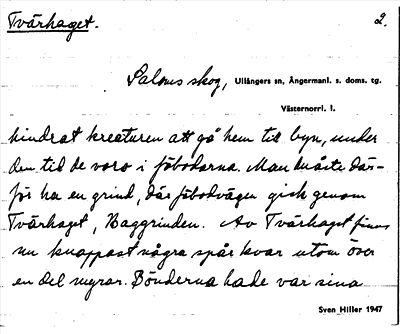 Tvärhaget.
2.
Salens skog, Ullångers sn, Ångermanl. s. doms. tg.
Västernorrl. l.
hindrat kreaturen att gå hem till byn, under
den tid de voro i fäbodarna. Man måste där-
för ha en grind, där fäbodvägen gick genom
Tvärhaget, Baggrinden. Av Tvärhaget finns
nu knappast några spår kvar utom över
en del myrar. Bönderna hade var sina
Sven Hiller 1947